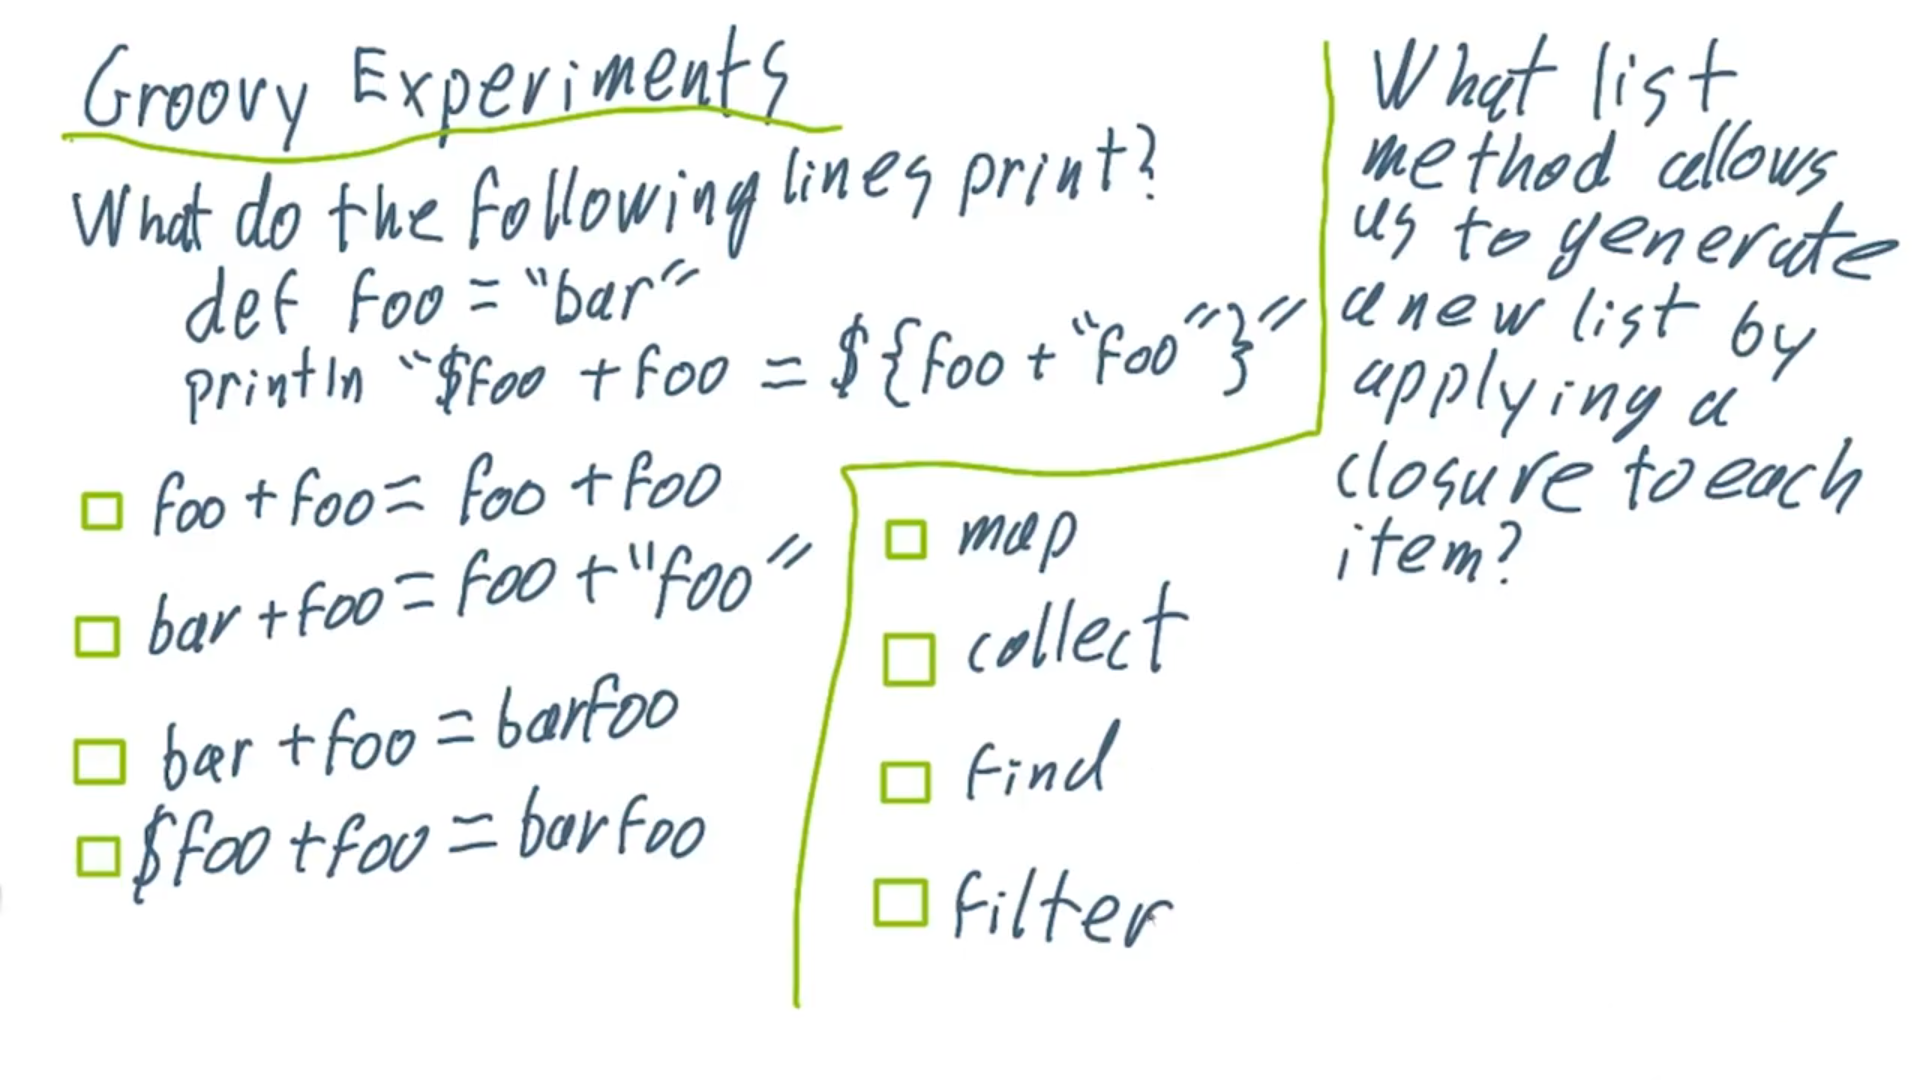 Groovy Experiments
What do the following lines print?
def foo = "bar"
println "$foo + foo = ${foo + "foo"}"
foo + foo = foo + foo
bar + foo = foo + "foo"
bar + foo = barfoo
$foo + foo = barfoo
What list
method allows
us to generate
a new list by
applying a
closure to each
item?
map
collect
find
filter